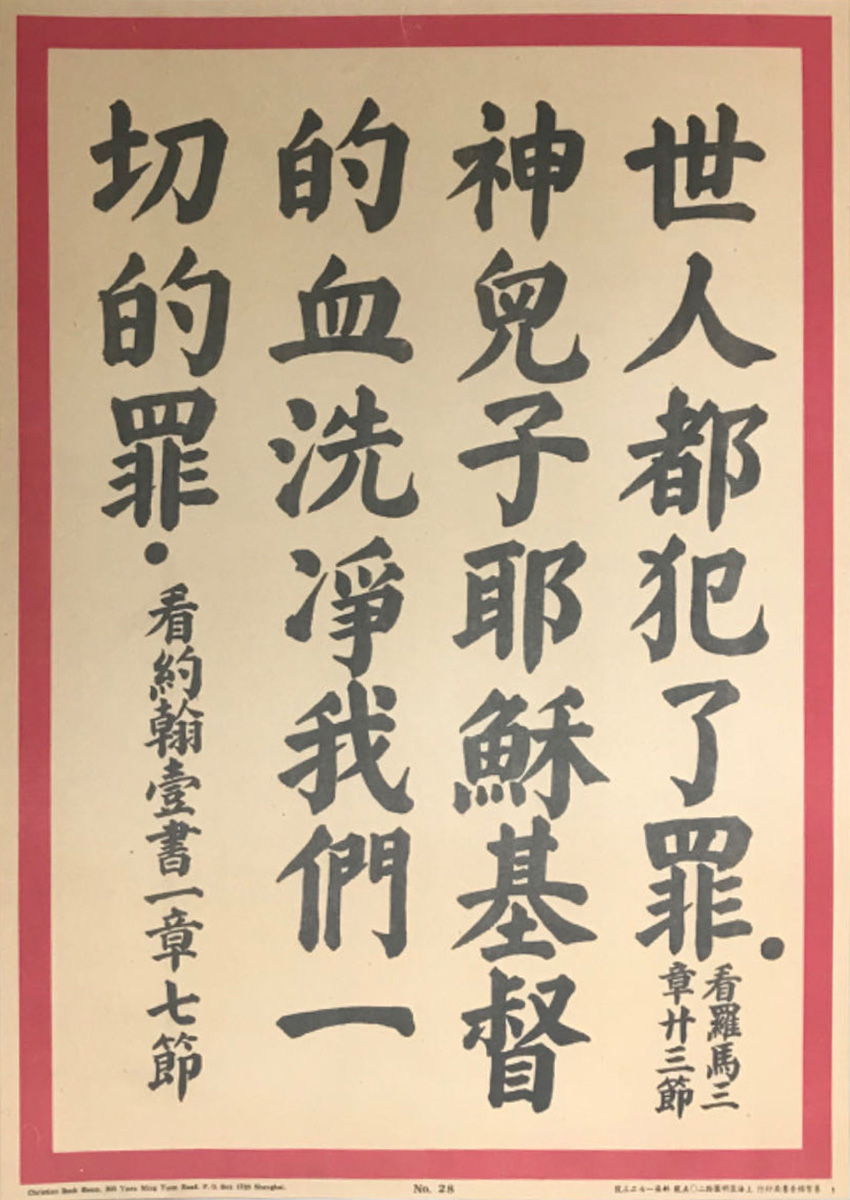 世人都犯了罪.
看羅馬三
章廿三節
神兒子耶穌基督
的血洗凈我們一
切的罪.
看約翰壹書一章七節
Christian Book Room, Yuen Ming Yuen Road, P. O. Box Shanghai.
No. 28